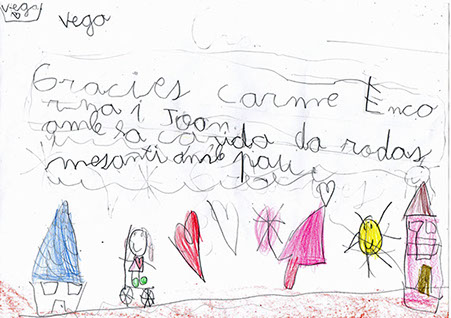 vega
vega
Gracies Carme Enco
rna i Joan
amb sa ca da da rodas
mesanti amb pau